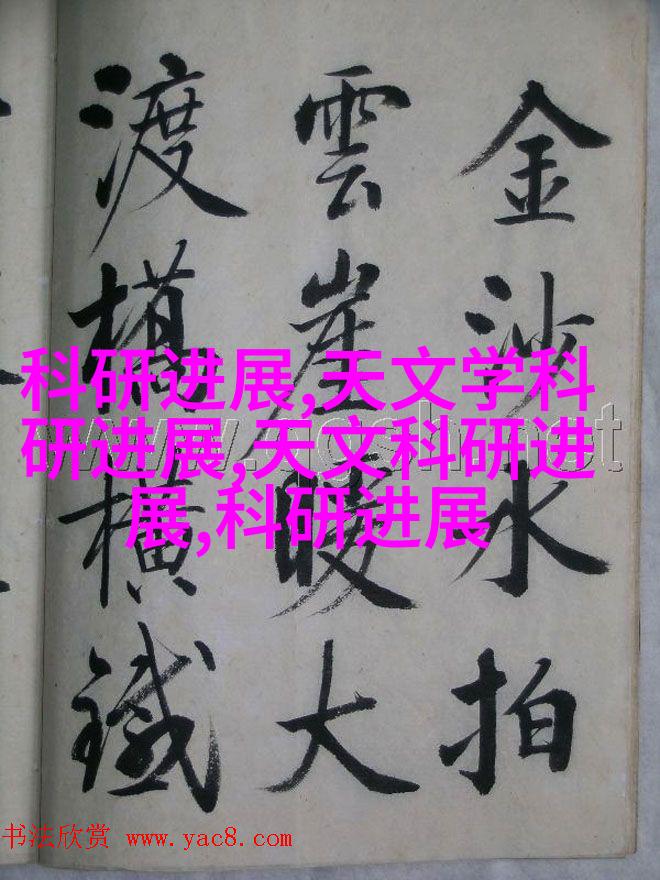 金沙水拍
雲崖暖大
渡橋橫鐵
科研进展,天文学科
研进展,天文科研进
展,科研进展
书法欣赏 www.yac8.com